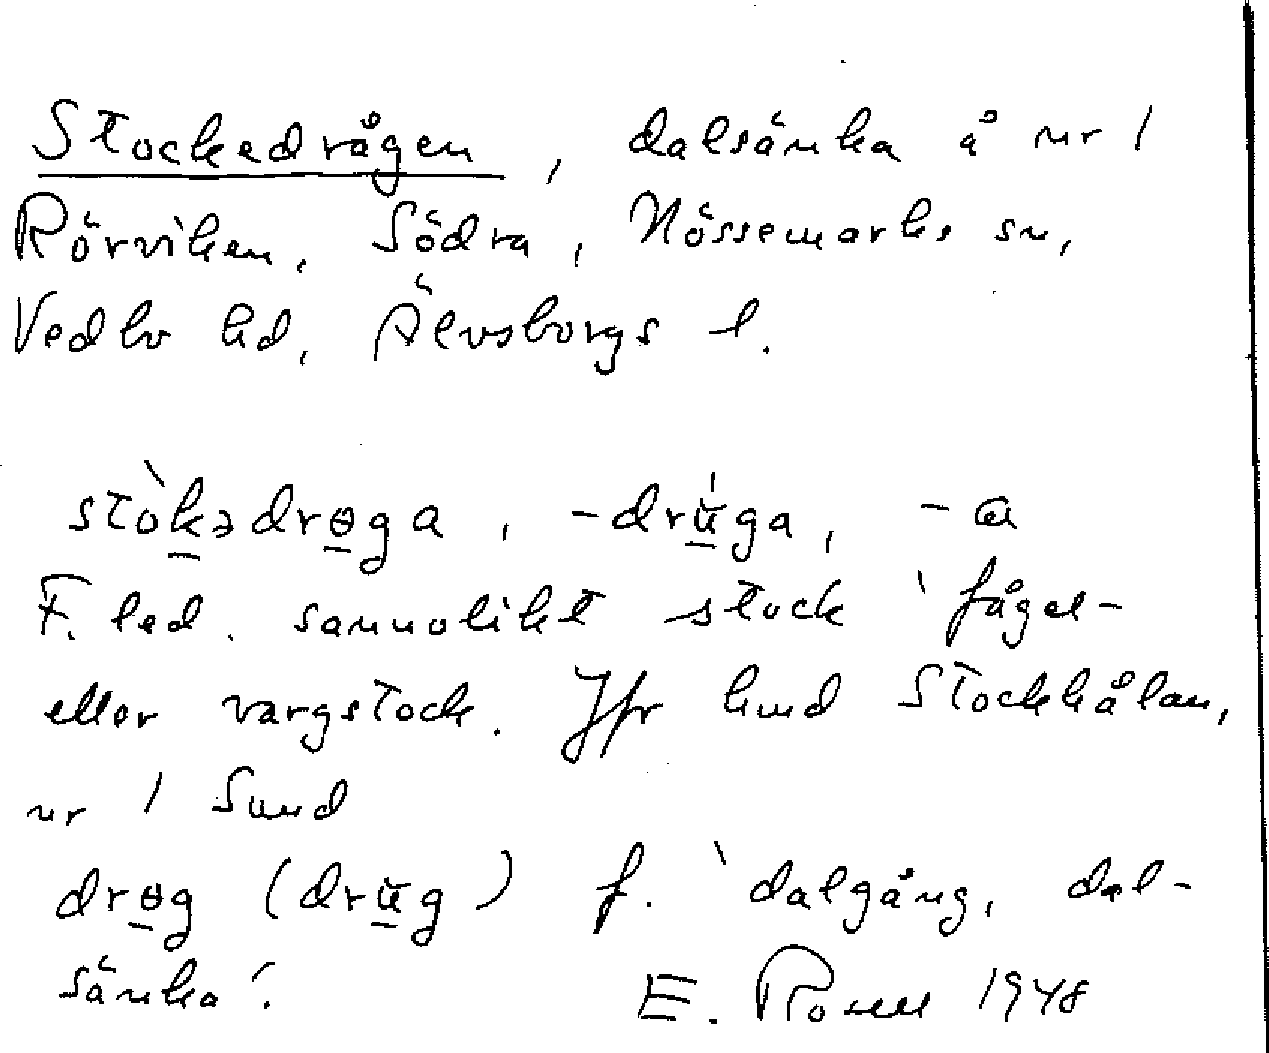 Stockedrågen, dalsänka å nr 1
Rörviken, Södra, Nössemarks sn,
Vedbo hd, Älvsborgs l.
stòk̲ədrɵ̲ga, -drǘ̲ga, -ɑ
F. led. sannolikt stock 'fågel-
eller vargstock. Jfr hmd Stockhålan,
nr 1 Sund
drɵ̲g (drü̲g) f. 'dalgång, dal-
sänka'.
E. Rosell 1948